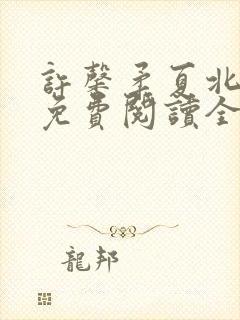 許馨矛夏北
免費閱讀全
龍邦